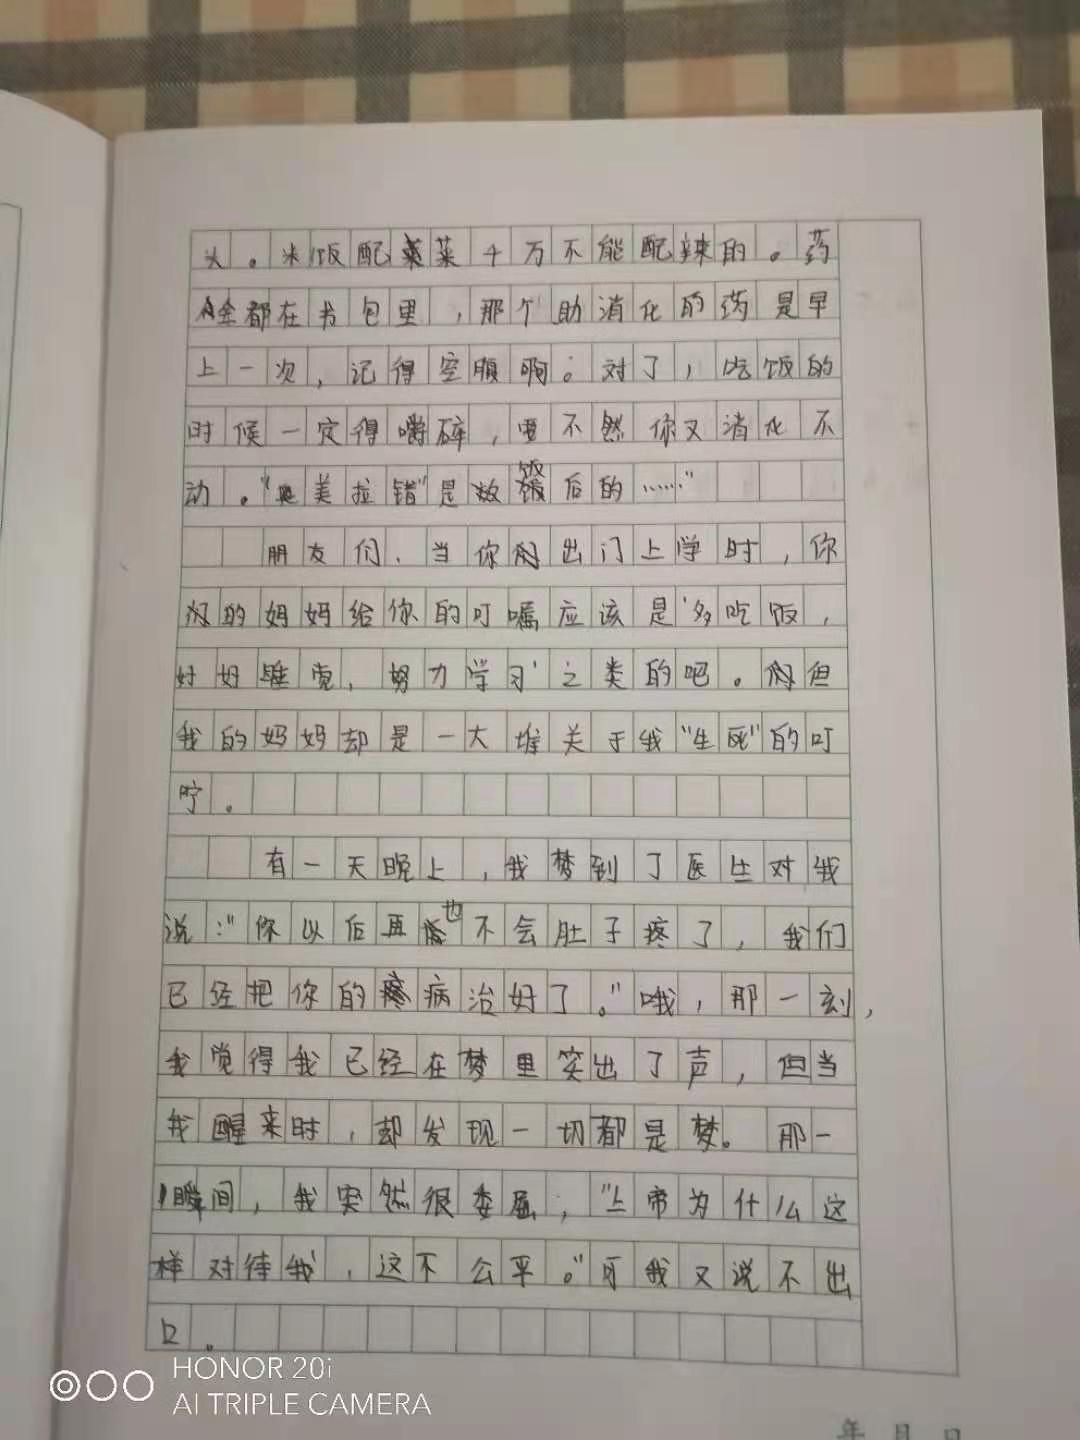 头。米饭配菜千万不能配辣的。药
全都在书包里，那个助消化的药是早
上一次，记得空腹啊。对了，吃饭的
时候一定得嚼碎，要不然你又消化不
动。“奥美拉错”是放饭后的……”
朋友们、当你们出门上学时，你
们的妈妈给你的叮嘱应该是‘多吃饭，
好好睡觉，努力学习’之类的吧。但
我的妈妈却是一大堆关于我“生死”的叮
咛。
有一天晚上，我梦到了医生对我
说：“你以后再也不会肚子疼了，我们
已经把你的病治好了。”哦，那一刻，
我觉得我已经在梦里笑出了声，但当
我醒来时，却发现一切都是梦。那一
瞬间，我突然很委屈，“上帝为什么这
样对待我，这不公平。”可我又说不出
口。
年 月 日
HONOR 20i
AI TRIPLE CAMERA